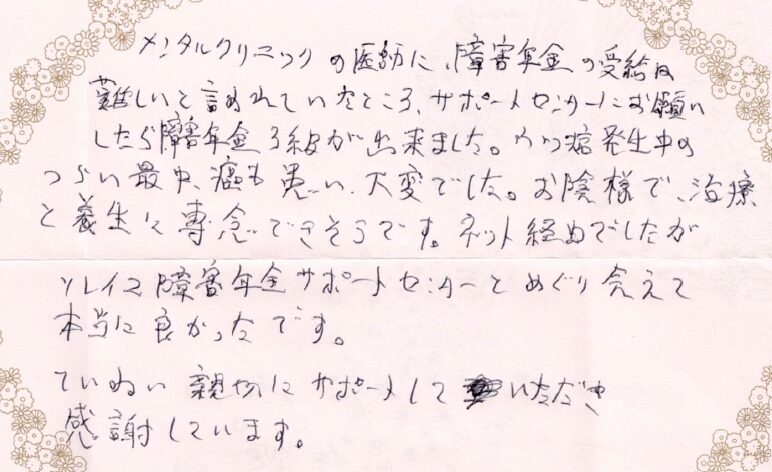 メンタルクリニックの医師に、障害年金の受給は
難しいと言われていたところ、サポートセンターにお願い
したら障害年金3級が出来ました。ウツ病発生中の
つらい最中、癌も患い、大変でした。お陰様で、治療
と養生に専念できそうです。ネット経由でしたが
ソレイユ障害年金サポートセンターとめぐり会えて
本当に良かったです。
ていねい親切にサポートしていただき
感謝しています。